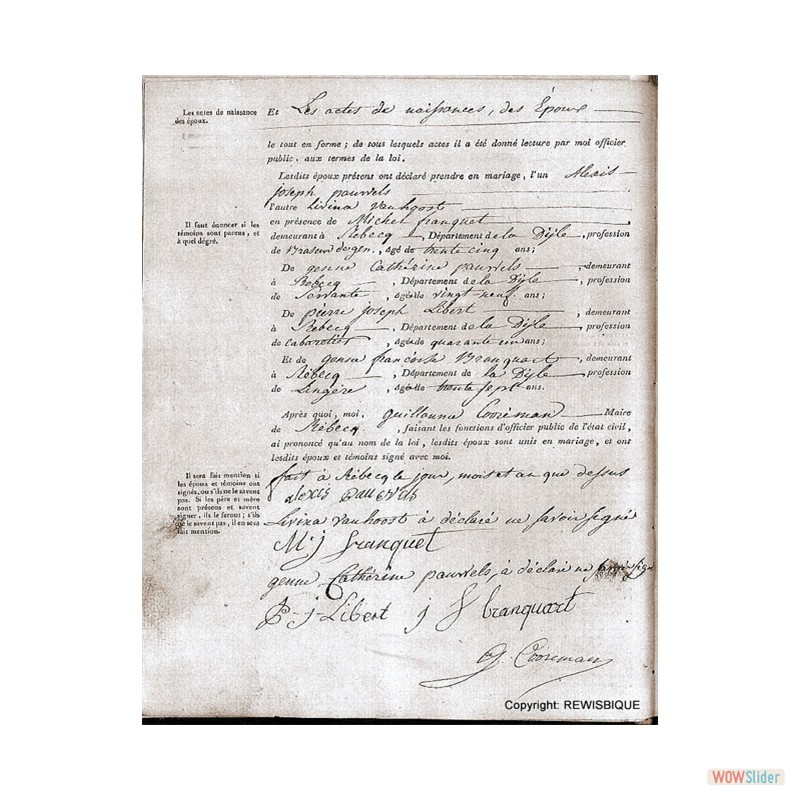 Les actes de naissance
des époux.
Et Les actes de naissances, des Époux
le tout en forme ; de tous lesquels actes il a été donné lecture par moi officier
public. aux termes de la loi.
Lesdits époux présens ont déclaré prendre en mariage, l'un Alexis
joseph pauwels
l'autre Livina Vanhoost
Il faut énoncer si les
témoins sont parens, et
à quel dégré.
en présence de Michel franquet
demeurant à Rebecq, Département de la Dijle, profession
de, agé de trente cinq ans ;
De genne Cathérine pauwels, demeurant
à Rebecq, Département de la Dijle, profession
de Servante, agée de vingt-neuf ans ;
De pierre joseph Libert, demeurant
à Rébecq, Département de la Dijle, profession
de Cabaretier, agé de quarante un ans ;
Et de genne francoise Branquart, demeurant
à Rébecq, Département de la Dijle, profession
de Lingère, agé de trente sept ans.
Après quoi, moi, guillaume Cooreman Maire
de Rébecq, faisant les fonctions d'officier public de l'état civil,
ai prononcé qu'au nom de la loi, lesdits époux sont unis en mariage, et ont
lesdits époux et témoins signé avec moi.
Il sera fait mention si
les époux et témoins ont
signés, ou s'ils ne le savent
pas. Si les père et mère
sont présens et savent
signer, ils le feront ; s'ils
ne le savent pas, il en sera
fait mention.
fait à Rébecq le jour, mois et an que dessus
alexis pauwels
Livina Vanhoost à déclaré ne savoir signé
M: j franquet
genne Cathérine pauwels, à déclaré ne savoir signé
P-j-Libert j f branquart
g. Cooreman
Copyright: REWISBIQUE
WOWSlider